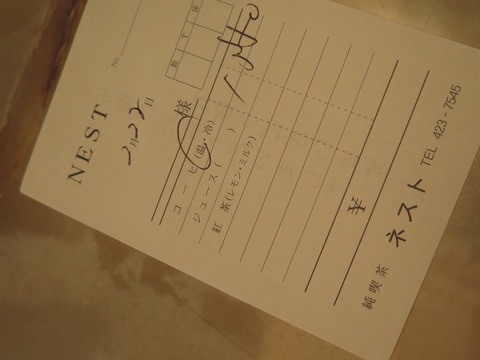 NEST
No.
月22日
様
コーヒ(温・冷)
ジュース( )
紅茶(レモン・ミルク)
¥
純喫茶 ネスト TEL 423-7545